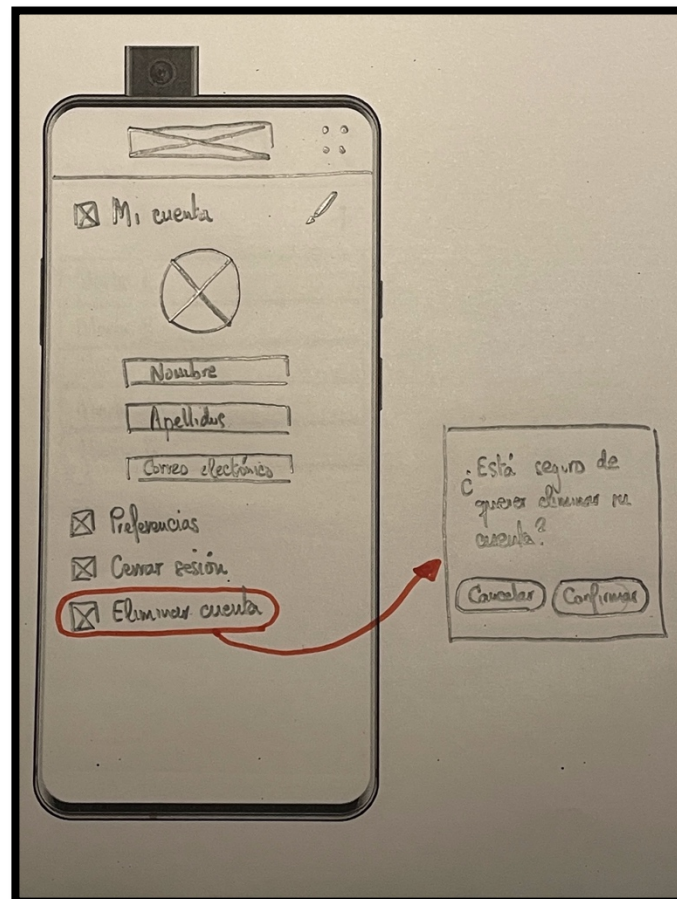 Mi cuenta
Nombre
Apellidos
Correo electrónico
Preferencias
Cerrar sesión
Eliminar cuenta
¿Está seguro de
querer eliminar su
cuenta?
Cancelar
Confirmar